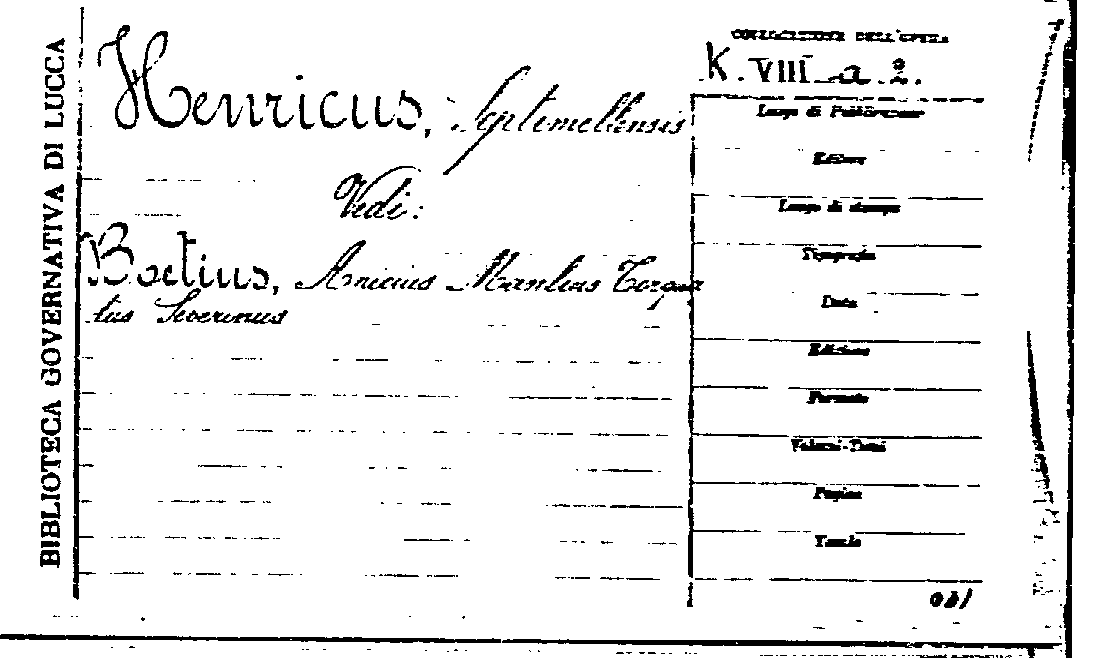 BIBLIOTECA GOVERNATIVA DI LUCCA
COLLOCAZIONE DELL'OPERA
K. VIII a. 2.
Henricus, Septemellensis
Vedi:
Boetius, Anicius Manlius Torqua
tus Severinus
Luogo di Pubblicazione
Editore
Luogo di stampa
Tipografia
Data
Edizione
Formato
Volumi-Tomi
Pagine
Tavole